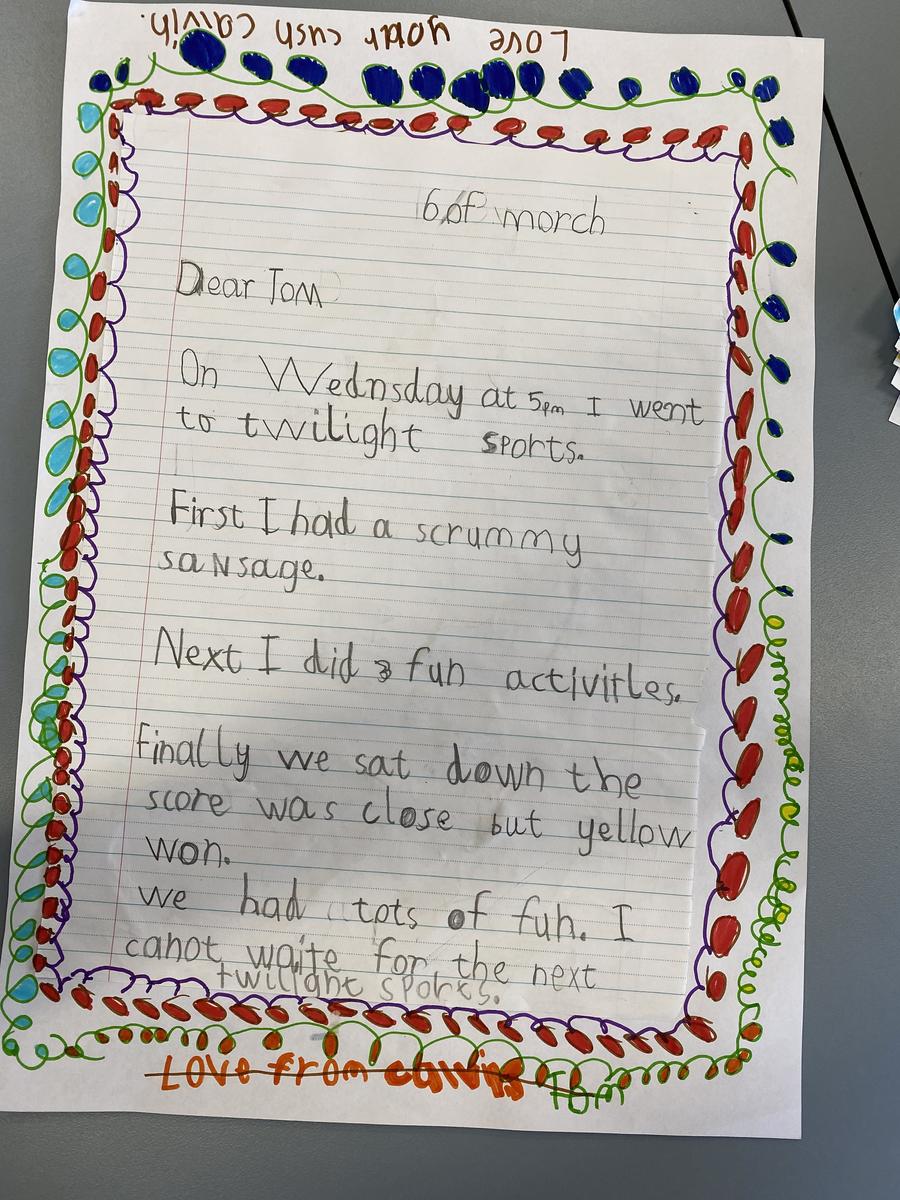 Love your cush calvin.
6 of morch
Dear Tom
On Wednsday at 5pm I went
to twilight sports.
First I had a scrummy
sansage.
Next I did 3 fun activitles.
Finally we sat down the
score was close but yellow
won.
we had tots of fun. I
canot waite for the next
twilight sports.
Love from